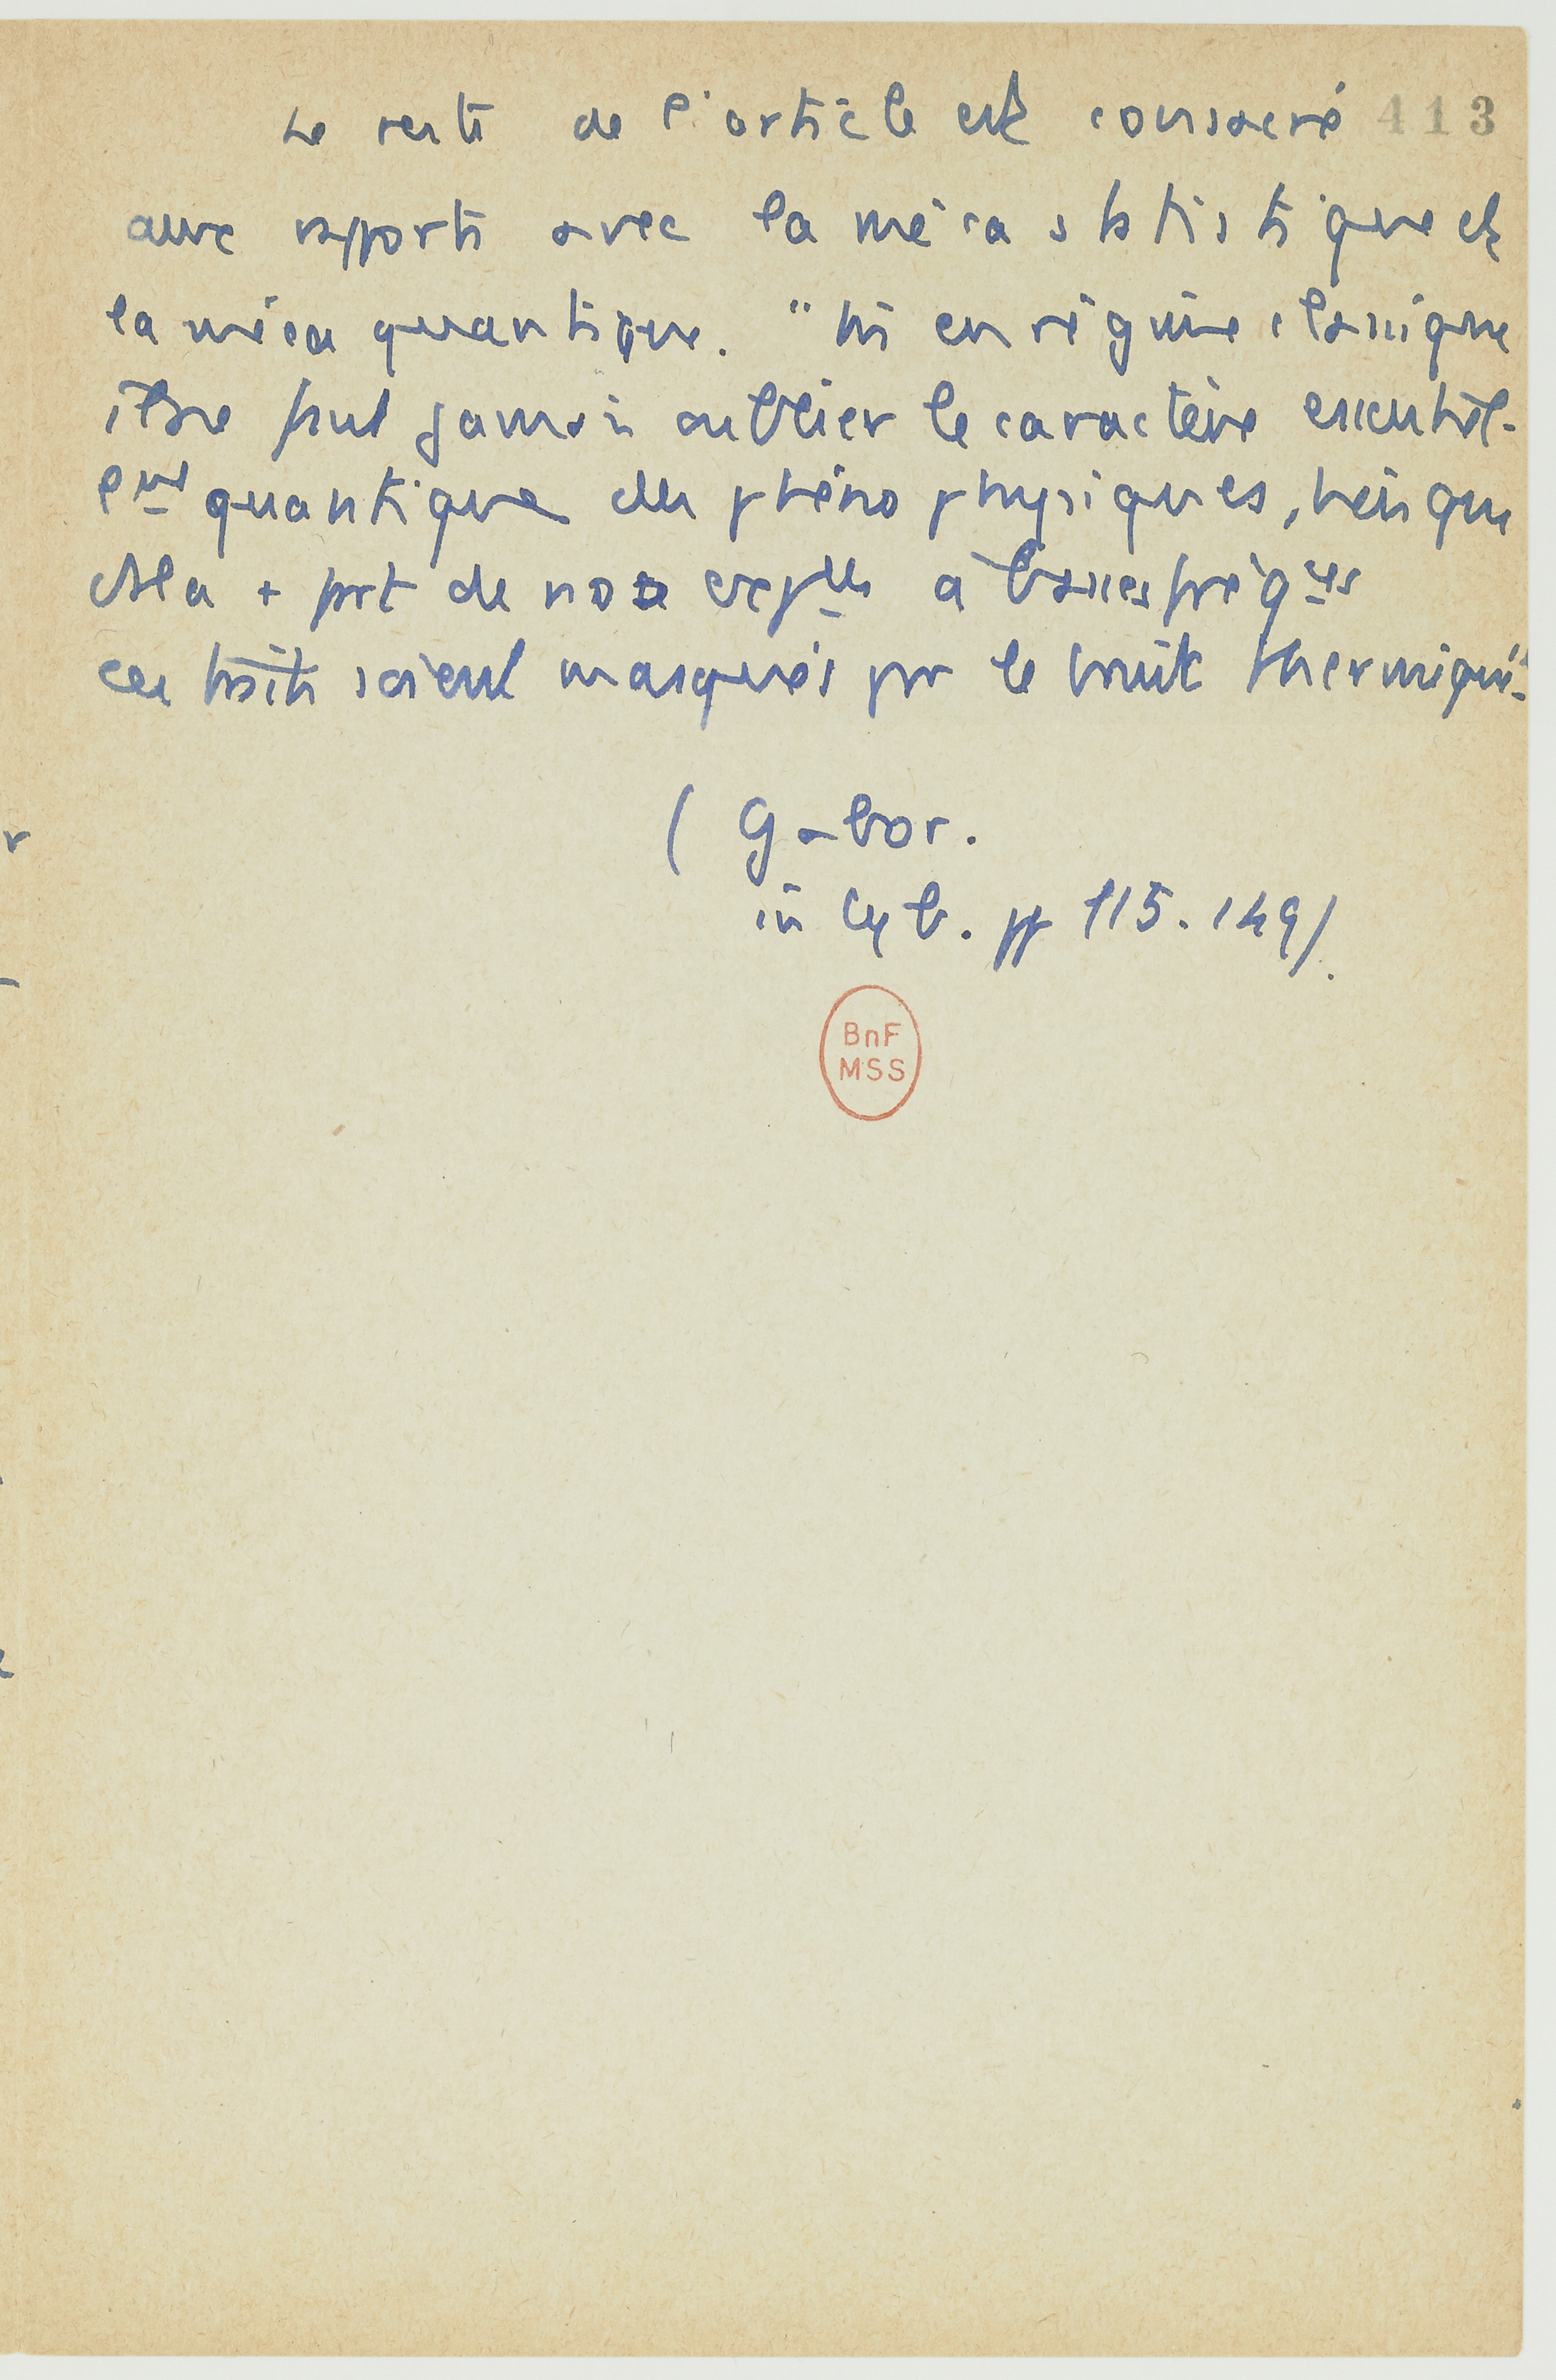 Le reste de l'article est consacré 413
aux rapports avec la méca statistique et
la méca quantique. "Mais en régime classique
il ne faut jamais oublier le caractère essentiel-
lemt quantique des phéno physiques, bien que
ds la + part de nos expces à basses fréqces
ces traits soient masqués par le bruit thermique"
( Gabor.
in Cyb. pp 115.149).
BnF
MSS